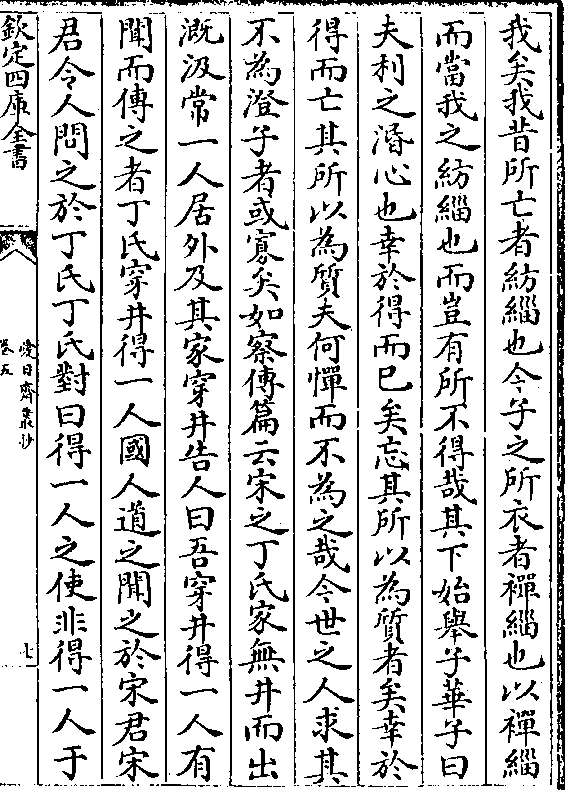 我矣我昔所亡者紡緇也今子之所衣者襌緇也以襌緇
而當我之紡緇也而豈有所不得哉其下始舉子華子曰
夫利之湣心也幸於得而已矣忘其所以為質者矣幸於
得而亡其所以為質夫何憚而不為之哉今世之人求其
不為澄子者或寡矣如察傳篇云宋之丁氏家無井而出
溉汲常一人居外及其家穿井告人曰吾穿井得一人有
聞而傳之者丁氏穿井得一人國人道之聞之於宋君宋
君令人問之於丁氏丁氏對曰得一人之使非得一人于
欽定四庫全書
愛日齋叢抄
卷五
七